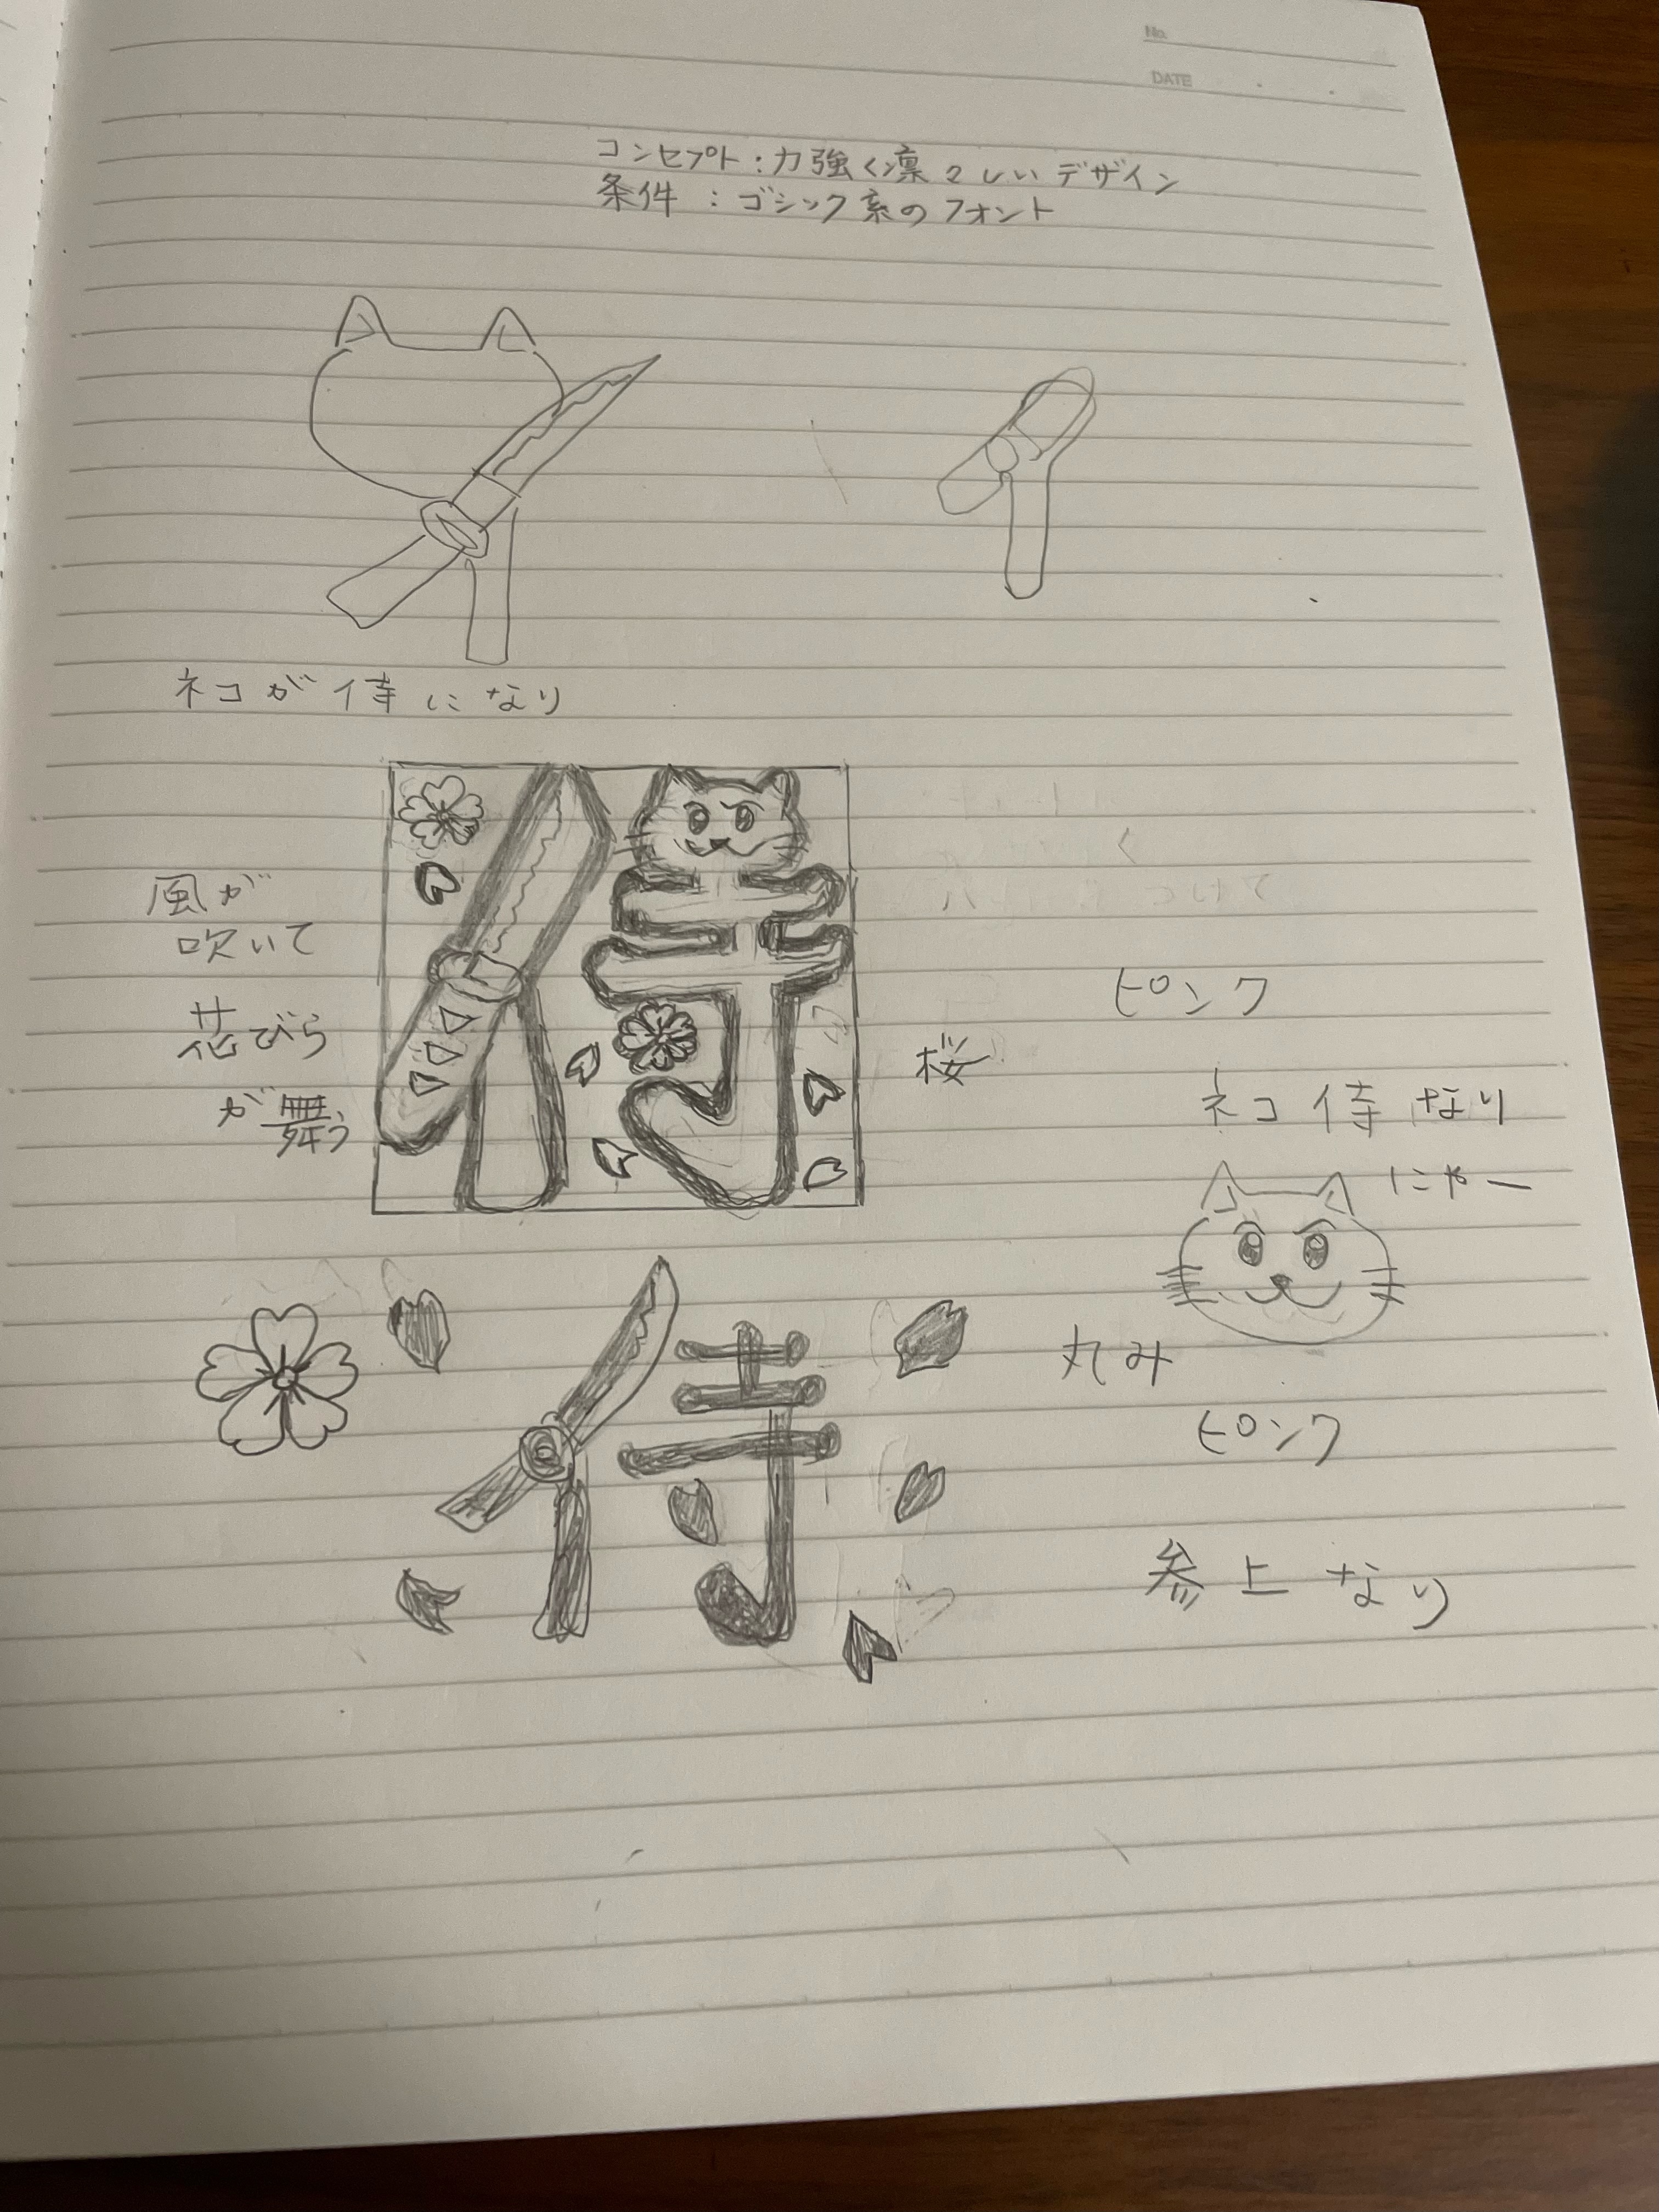 No.
DATE
コンセプト：力強く凛々しいデザイン
条件：ゴシック系のフォント
ネコが侍になり
風が
吹いて
花びら
が舞う
侍
桜
ピンク
ネコ侍なり
にゃー
丸み
ピンク
侍
参上なり